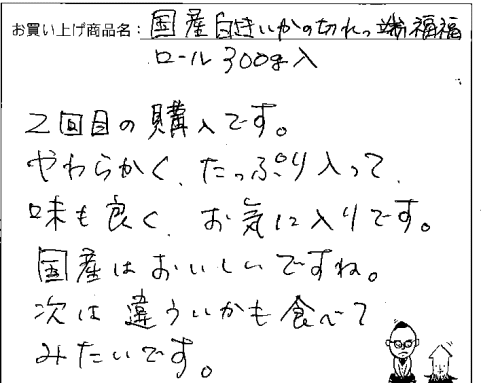 お買い上げ商品名：国産白きいかの切れっ端福福
ロール300g入
2回目の購入です。
やわらかく、たっぷり入って、
味も良く、お気に入りです。
国産はおいしいですね。
次は違ういかも食べて
みたいです。